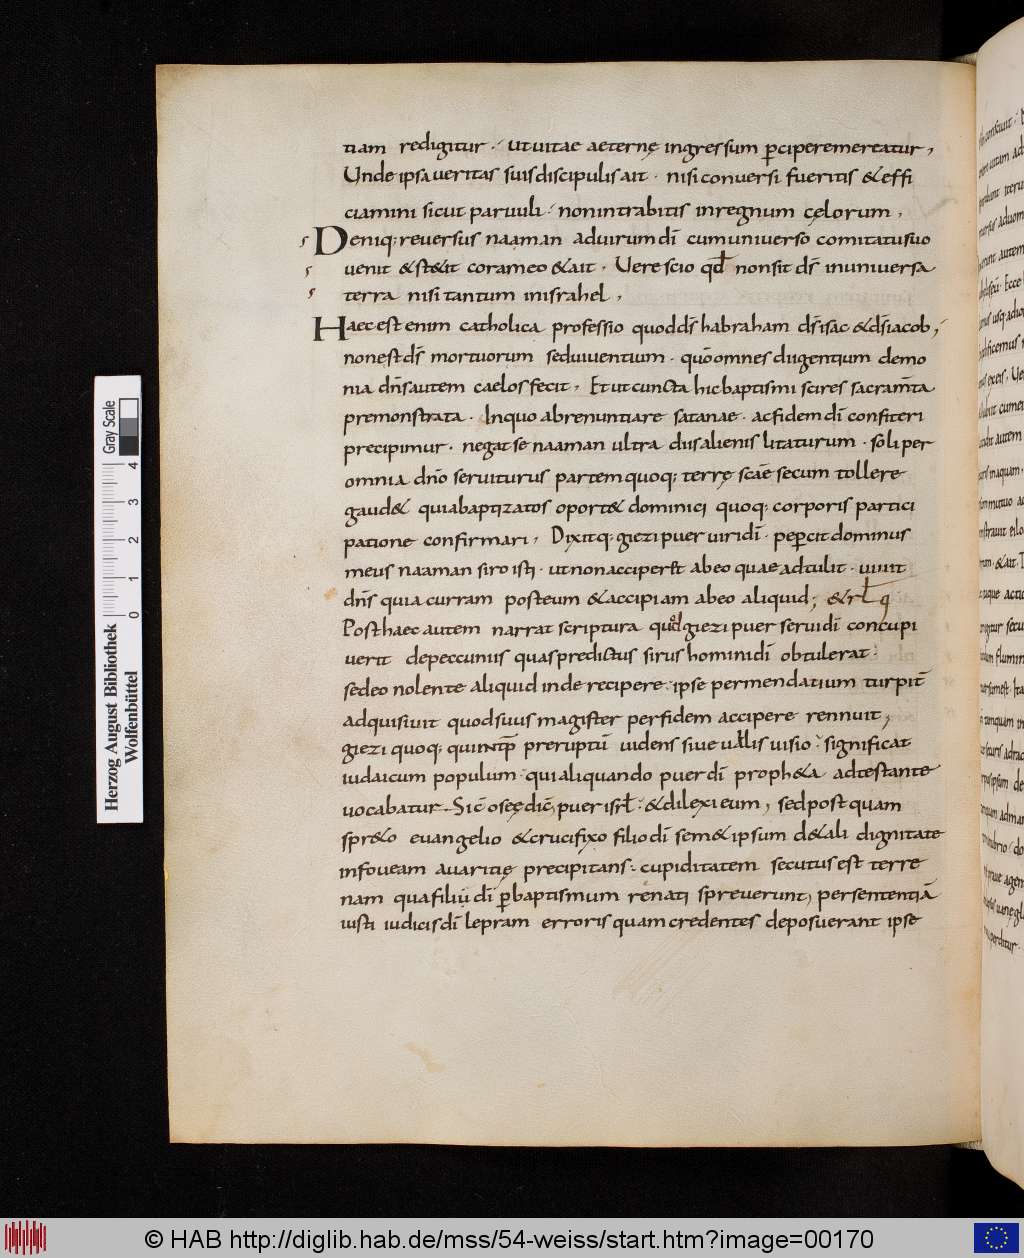 tiam redigitur · ut vitae aeternę ingressum p̄cipere mereatur,
Unde ipsa veritas suis discipulis ait · nisi conversi fueritis & effi
ciamini sicut parvuli · non intrabitis in regnum cęlorum,
Deniq; reversus naaman ad virum dī cum universo comitatu suo
venit & st&it coram eo & ait · Vere scio qđ non sit ds̄ in universa
terra nisi tantum in israhel,
Haec est enim catholica professio quod ds̄ habraham ds̄ isac & ds̄ iacob,
non est ds̄ mortuorum sed viventium · quō omnes dii gentium demo
nia dn̄s autem caelos fecit, Et ut cuncta hic baptismi scires sacram̄ta
premonstrata · In quo abrenuntiare satanae · ac fidem dī confiteri
precipimur · negat se naaman ultra diis alienis litaturum · soli per
omnia dn̄o serviturus partem quoq; terrę sc̄ae secum tollere
gaud& quia baptizatos oport& dominici quoq; corporis partici
patione confirmari, Dixitq; giezi puer viri dī · pep̄cit dominus
meus naaman siro isti · ut non acciper& ab eo quae adtulit · vivit
dn̄s quia curram post eum & accipiam ab eo aliquid; & rł q
Post haec autem narrat scriptura quod giezi puer servi dī concupi
verit de peccuniis quas predictus sirus homini dī obtulerat
sed eo nolente aliquid inde recipere · ipse per mendatium turpit̄
adquisivit quod suus magister per fidem accipere rennuit,
giezi quoq; qui intp̄ preruptū videns sive vallis visio · significat
iudaicum populum · qui aliquando puer dī proph&a adtestante
vocabatur · Sic̄ oseę dic̄, puer isrł · & dilexi eum, sed postquam
spr&o evangelio & crucifixo filio dī sem& ipsum d& ali dignitate
in foveam avaritię precipitans · cupiditatem secutus est terre
nam qua filii dī p̄ baptismum renati spreverunt, per sententiā
iusti iudicis dī lepram erroris quam credentes deposuerant ipse
Herzog August Bibliothek
Wolfenbüttel
Gray Scale
0 1 2 3 4
© HAB http://diglib.hab.de/mss/54-weiss/start.htm?image=00170